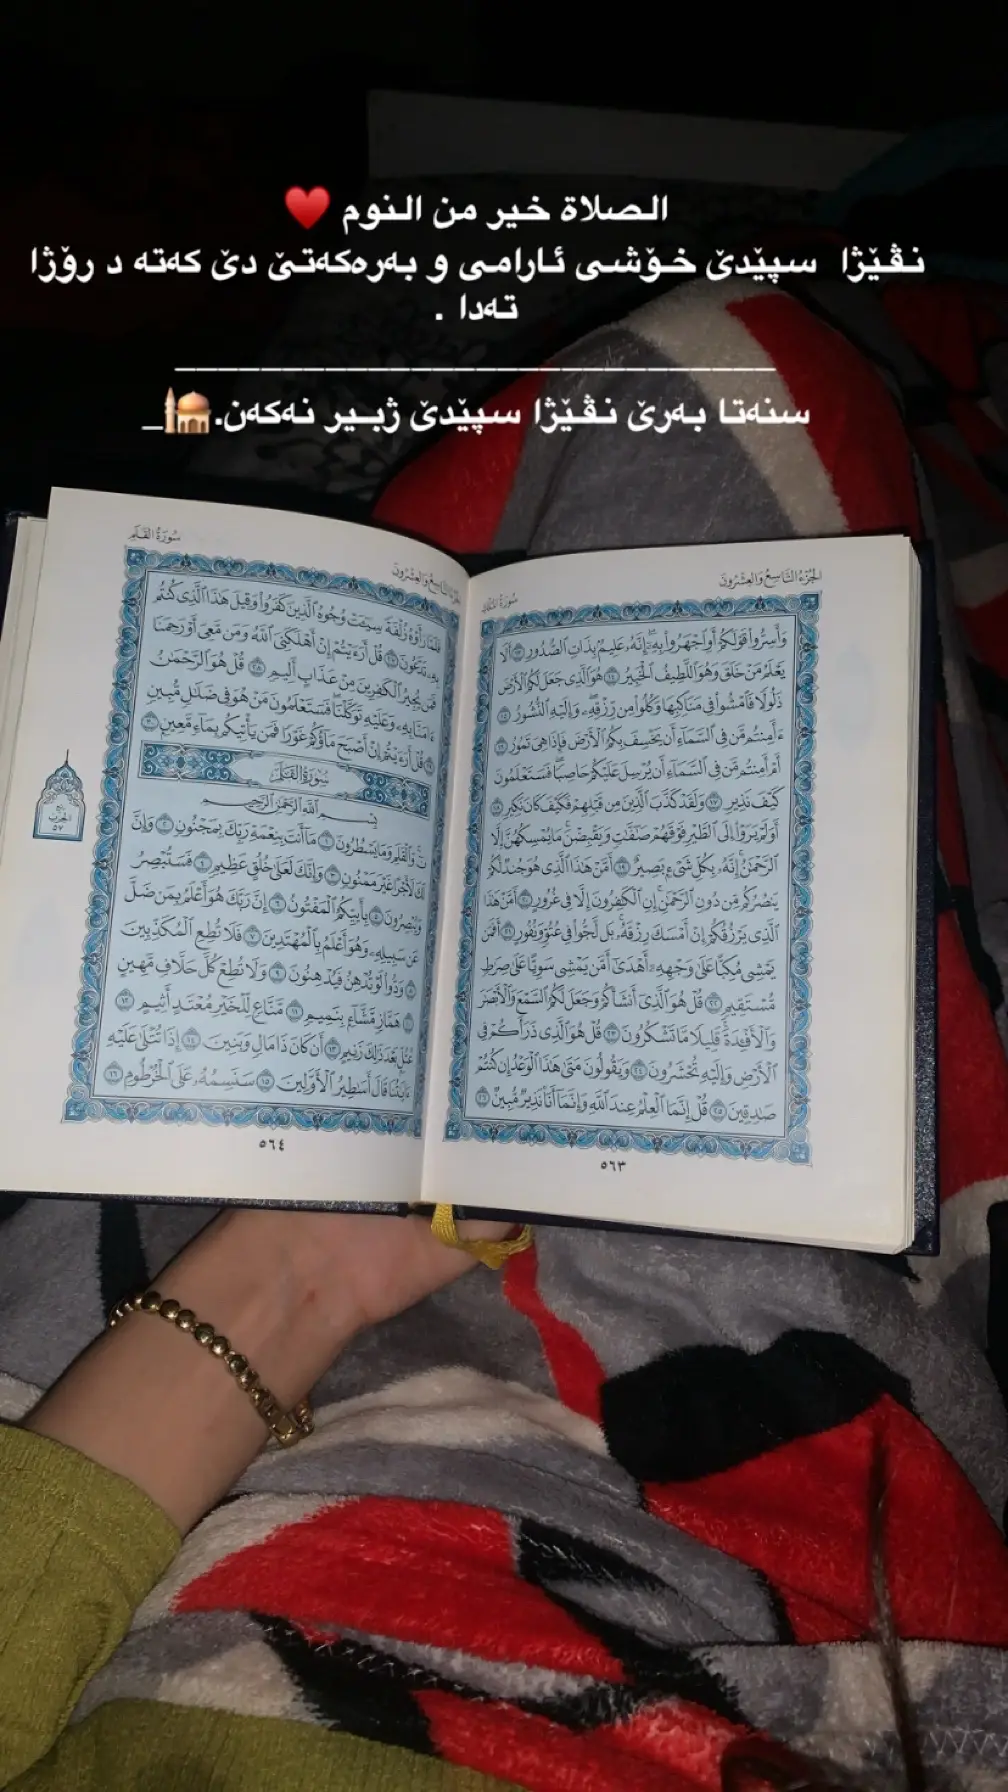 الصلاة خير من النوم ♥️
نڤێژا سپێدێ خۆشی ئارامی و بەرەکەتێ دێ کەتە د رۆژا
تەدا .
ــــــــــــــــــــــــــــــــــــــــ
سنەتا بەرێ نڤێژا سپێدێ ژبیر نەکەن.🕌_
الجزء التاسع والعشرون
سورة الملك
وَأَسِرُّوا۟ قَوْلَكُمْ أَوِ ٱجْهَرُوا۟ بِهِۦٓ إِنَّهُۥ عَلِيمٌۢ بِذَاتِ ٱلصُّدُورِ ١٣ أَلَا
يَعْلَمُ مَنْ خَلَقَ وَهُوَ ٱللَّطِيفُ ٱلْخَبِيرُ ١٤ هُوَ ٱلَّذِى جَعَلَ لَكُمُ ٱلْأَرْضَ
ذَلُولًا فَٱمْشُوا۟ فِى مَنَاكِبِهَا وَكُلُوا۟ مِن رِّزْقِهِۦ وَإِلَيْهِ ٱلنُّشُورُ ١٥
ءَأَمِنتُم مَّن فِى ٱلسَّمَآءِ أَن يَخْسِفَ بِكُمُ ٱلْأَرْضَ فَإِذَا هِىَ تَمُورُ ١٦
أَمْ أَمِنتُم مَّن فِى ٱلسَّمَآءِ أَن يُرْسِلَ عَلَيْكُمْ حَاصِبًا فَسَتَعْلَمُونَ
كَيْفَ نَذِيرِ ١٧ وَلَقَدْ كَذَّبَ ٱلَّذِينَ مِن قَبْلِهِمْ فَكَيْفَ كَانَ نَكِيرِ ١٨
أَوَلَمْ يَرَوْا۟ إِلَى ٱلطَّيْرِ فَوْقَهُمْ صَٰٓفَّٰتٍ وَيَقْبِضْنَ مَا يُمْسِكُهُنَّ إِلَّا
ٱلرَّحْمَٰنُ إِنَّهُۥ بِكُلِّ شَىْءٍۭ بَصِيرٌ ١٩ أَمَّنْ هَٰذَا ٱلَّذِى هُوَ جُندٌ لَّكُمْ
يَنصُرُكُم مِّن دُونِ ٱلرَّحْمَٰنِ إِنِ ٱلْكَٰفِرُونَ إِلَّا فِى غُرُورٍ ٢٠ أَمَّنْ هَٰذَا
ٱلَّذِى يَرْزُقُكُمْ إِنْ أَمْسَكَ رِزْقَهُۥ بَل لَّجُّوا۟ فِى عُتُوٍّ وَنُفُورٍ ٢١ أَفَمَن
يَمْشِى مُكِبًّا عَلَىٰ وَجْهِهِۦٓ أَهْدَىٰٓ أَمَّن يَمْشِى سَوِيًّا عَلَىٰ صِرَٰطٍ
مُّسْتَقِيمٍ ٢٢ قُلْ هُوَ ٱلَّذِىٓ أَنشَأَكُمْ وَجَعَلَ لَكُمُ ٱلسَّمْعَ وَٱلْأَبْصَٰرَ
وَٱلْأَفْـِٔدَةَ قَلِيلًا مَّا تَشْكُرُونَ ٢٣ قُلْ هُوَ ٱلَّذِى ذَرَأَكُمْ فِى
ٱلْأَرْضِ وَإِلَيْهِ تُحْشَرُونَ ٢٤ وَيَقُولُونَ مَتَىٰ هَٰذَا ٱلْوَعْدُ إِن كُنتُمْ
صَٰدِقِينَ ٢٥ قُلْ إِنَّمَا ٱلْعِلْمُ عِندَ ٱللَّهِ وَإِنَّمَآ أَنَا۠ نَذِيرٌ مُّبِينٌ ٢٦
٥٦٣
الجزء التاسع والعشرون
سورة القلم
فَلَمَّا رَأَوْهُ زُلْفَةً سِيٓـَٔتْ وُجُوهُ ٱلَّذِينَ كَفَرُوا۟ وَقِيلَ هَٰذَا ٱلَّذِى كُنتُم
بِهِۦ تَدَّعُونَ ٢٧ قُلْ أَرَءَيْتُمْ إِنْ أَهْلَكَنِىَ ٱللَّهُ وَمَن مَّعِىَ أَوْ رَحِمَنَا
فَمَن يُجِيرُ ٱلْكَٰفِرِينَ مِنْ عَذَابٍ أَلِيمٍ ٢٨ قُلْ هُوَ ٱلرَّحْمَٰنُ
ءَامَنَّا بِهِۦ وَعَلَيْهِ تَوَكَّلْنَا فَسَتَعْلَمُونَ مَنْ هُوَ فِى ضَلَٰلٍ مُّبِينٍ
٢٩ قُلْ أَرَءَيْتُمْ إِنْ أَصْبَحَ مَآؤُكُمْ غَوْرًا فَمَن يَأْتِيكُم بِمَآءٍ مَّعِينٍۭ ٣٠
سورة القلم
بِسْمِ ٱللَّهِ ٱلرَّحْمَٰنِ ٱلرَّحِيمِ
نٓ وَٱلْقَلَمِ وَمَا يَسْطُرُونَ ١ مَآ أَنتَ بِنِعْمَةِ رَبِّكَ بِمَجْنُونٍ ٢ وَإِنَّ
لَكَ لَأَجْرًا غَيْرَ مَمْنُونٍ ٣ وَإِنَّكَ لَعَلَىٰ خُلُقٍ عَظِيمٍ ٤ فَسَتُبْصِرُ
وَيُبْصِرُونَ ٥ بِأَييِّكُمُ ٱلْمَفْتُونُ ٦ إِنَّ رَبَّكَ هُوَ أَعْلَمُ بِمَن ضَلَّ
عَن سَبِيلِهِۦ وَهُوَ أَعْلَمُ بِٱلْمُهْتَدِينَ ٧ فَلَا تُطِعِ ٱلْمُكَذِّبِينَ
٨ وَدُّوا۟ لَوْ تُدْهِنُ فَيُدْهِنُونَ ٩ وَلَا تُطِعْ كُلَّ حَلَّافٍ مَّهِينٍ
١٠ هَمَّازٍ مَّشَّآءٍۭ بِنَمِيمٍ ١١ مَّنَّاعٍ لِّلْخَيْرِ مُعْتَدٍ أَثِيمٍ ١٢
عُتُلٍّۭ بَعْدَ ذَٰلِكَ زَنِيمٍ ١٣ أَن كَانَ ذَا مَالٍ وَبَنِينَ ١٤ إِذَا تُتْلَىٰ عَلَيْهِ
ءَايَٰتُنَا قَالَ أَسَٰطِيرُ ٱلْأَوَّلِينَ ١٥ سَنَسِمُهُۥ عَلَى ٱلْخُرْطُومِ ١٦
٥٦٤
الحزب
٥٧